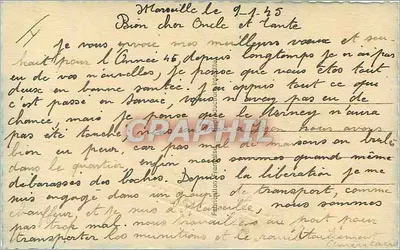 Marseille le 9-1-45
Bien cher Oncle et tante
Je vous envoie mes meilleurs vœux et sou
haits pour l'Année 45, depuis longtemps je n'ai pas
eu de vos nouvelles, je pense que vous êtes tout
deux en bonne santée. J'ai appris tout ce que
c'est passé en Savoie, vous n'avez pas eu de
chance, mais je pense que le n'aura
pas été touché, nous avons
bien eu peur, car pas mal de maisons on brulé
dans le quartier enfin nous sommes quand même
débarassés des boches. Depuis la libération je me
suis engagé dans un groupe de transport, comme
chauffeur, et je suis à Marseille, nous sommes
pas trop mal. nous travaillons au port pour
transporter les munitions et le ravitaillement
Américain
CPARTI